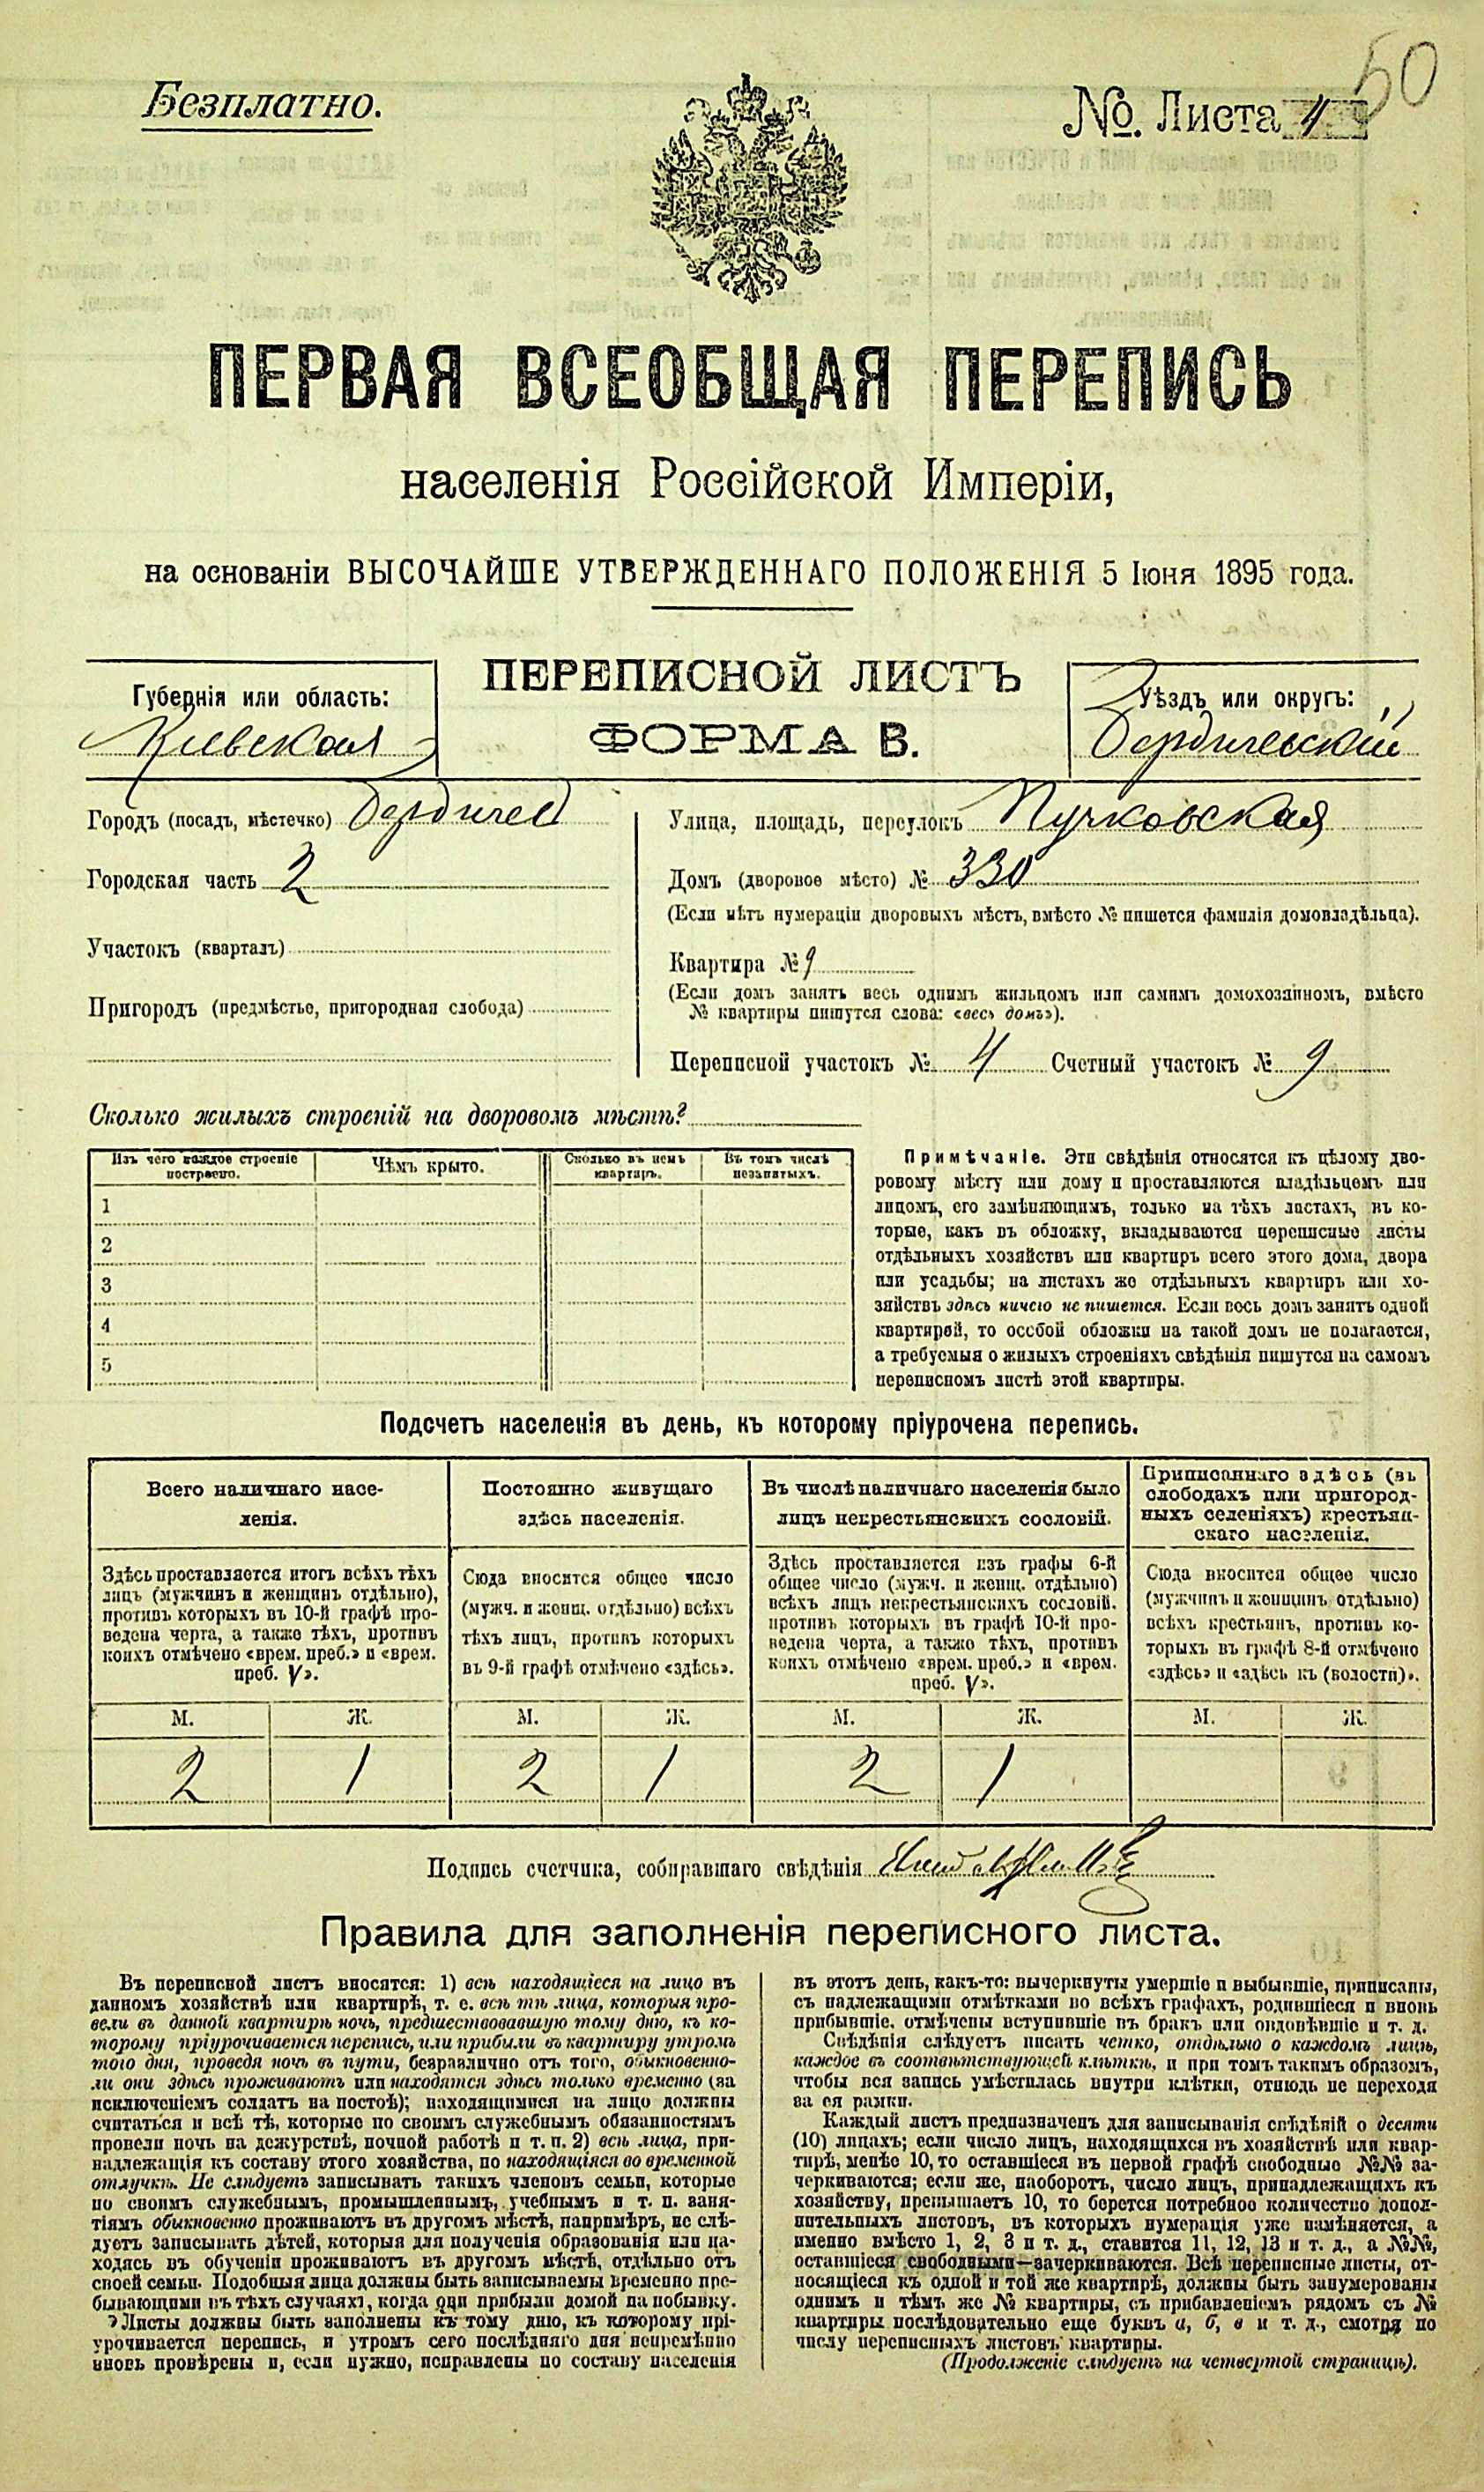 50
Безплатно.
№. Листа
ПЕРВАЯ ВСЕОБЩАЯ ПЕРЕПИСЬ
населенія Россійской Имперіи,
на основаніи ВЫСОЧАЙШЕ УТВЕРЖДЕННАГО ПОЛОЖЕНІЯ 5 Іюня 1895 года.
ПЕРЕПИСНОЙ ЛИСТЪ
ФОРМА В.
Губернія или область:
Киевская
Уѣздъ или округъ:
Бердичевскій
Городъ (посадъ, мѣстечко) Бердичев
Городская часть 2
Участокъ (кварталъ)
Пригородъ (предмѣстье, пригородная слобода)
Улица, площадь, переулокъ Пучковская
Домъ (дворовое мѣсто) № 330
(Если нѣтъ нумераціи дворовыхъ мѣстъ, вмѣсто № пишется фамилія домовладѣльца).
Квартира № 9
(Если домъ занятъ весь однимъ жильцомъ или самимъ домохозяиномъ, вмѣсто
№ квартиры пишутся слова: «весь домъ»).
Переписной участокъ № 4 Счетный участокъ № 9
Сколько жилыхъ строеній на дворовомъ мѣстѣ?
Изъ чего каждое строеніе
построено.
Чѣмъ крыто.
Сколько въ немъ
квартиръ.
Въ томъ числѣ
незанятыхъ.
1
2
3
4
5
Примѣчаніе. Эти свѣдѣнія относятся къ цѣлому дво-
ровому мѣсту или дому и проставляются владѣльцемъ или
лицомъ, его замѣняющимъ, только на тѣхъ листахъ, въ ко-
торые, какъ въ обложку, вкладываются переписные листы
отдѣльныхъ хозяйствъ или квартиръ всего этого дома, двора
или усадьбы; на листахъ же отдѣльныхъ квартиръ или хо-
зяйствъ здѣсь ничего не пишется. Если весь домъ занятъ одной
квартирой, то особой обложки на такой домъ не полагается,
а требуемыя о жилыхъ строеніяхъ свѣдѣнія пишутся на самомъ
переписномъ листѣ этой квартиры.
Подсчетъ населенія въ день, къ которому пріурочена перепись.
Всего наличнаго насе-
ленія.
Постоянно живущаго
здѣсь населенія.
Въ числѣ наличнаго населенія было
лицъ некрестьянскихъ сословій.
Приписаннаго здѣсь (въ
слободахъ или пригород-
ныхъ селеніяхъ) крестьян-
скаго населенія.
Здѣсь проставляется итогъ всѣхъ тѣхъ
лицъ (мужчинъ и женщинъ отдѣльно),
противъ которыхъ въ 10-й графѣ про-
ведена черта, а также тѣхъ, противъ
коихъ отмѣчено «врем. преб.» и «врем.
преб. V».
Сюда вносится общее число
(мужч. и женщ. отдѣльно) всѣхъ
тѣхъ лицъ, противъ которыхъ
въ 9-й графѣ отмѣчено «здѣсь».
Здѣсь проставляется изъ графы 6-й
общее число (мужч. и женщ. отдѣльно)
всѣхъ лицъ некрестьянскихъ сословій.
противъ которыхъ въ графѣ 10-й про-
ведена черта, а также тѣхъ, противъ
коихъ отмѣчено «врем. преб.» и «врем.
преб. V».
Сюда вносится общее число
(мужчинъ и женщинъ отдѣльно)
всѣхъ крестьянъ, противъ ко-
торыхъ въ графѣ 8-й отмѣчено
«здѣсь» и «здѣсь къ (волости)».
М. Ж. М. Ж. М. Ж. М. Ж.
2 1 2 1 2 1
Подпись счетчика, собиравшаго свѣдѣнія
Правила для заполненія переписного листа.
Въ переписной листъ вносятся: 1) всѣ находящіеся на лицо въ
данномъ хозяйствѣ или квартирѣ, т. е. всѣ тѣ лица, которыя про-
вели въ данной квартирѣ ночь, предшествовавшую тому дню, къ ко-
торому пріурочивается перепись, или прибыли въ квартиру утромъ
того дня, проведя ночь въ пути, безразлично отъ того, обыкновенно-
ли они здѣсь проживаютъ или находятся здѣсь только временно (за
исключеніемъ солдатъ на постоѣ); находящимися на лицо должны
считаться и всѣ тѣ, которые по своимъ служебнымъ обязанностямъ
провели ночь на дежурствѣ, ночной работѣ и т. п. 2) всѣ лица, при-
надлежащія къ составу этого хозяйства, но находящіяся во временной
отлучкѣ. Не слѣдуетъ записывать такихъ членовъ семьи, которые
по своимъ служебнымъ, промышленнымъ, учебнымъ и т. п. заня-
тіямъ обыкновенно проживаютъ въ другомъ мѣстѣ, напримѣръ, не слѣ-
дуетъ записывать дѣтей, которыя для полученія образованія или на-
ходясь въ обученіи проживаютъ въ другомъ мѣстѣ, отдѣльно отъ
своей семьи. Подобныя лица должны быть записываемы временно пре-
бывающими въ тѣхъ случаяхъ, когда они прибыли домой на побывку.
Листы должны быть заполнены къ тому дню, къ которому прі-
урочивается перепись, и утромъ сего послѣдняго дня непремѣнно
вновь провѣрены и, если нужно, исправлены по составу населенія
въ этотъ день, какъ-то: вычеркнуты умершіе и выбывшіе, приписаны,
съ надлежащими отмѣтками во всѣхъ графахъ, родившіеся и вновь
прибывшіе, отмѣчены вступившіе въ бракъ или овдовѣвшіе и т. д.
Свѣдѣнія слѣдуетъ писать четко, отдѣльно о каждомъ лицѣ,
каждое въ соотвѣтствующей клѣткѣ, и при томъ такимъ образомъ,
чтобы вся запись умѣстилась внутри клѣтки, отнюдь не переходя
за ея рамки.
Каждый листъ предназначенъ для записыванія свѣдѣній о десяти
(10) лицахъ; если число лицъ, находящихся въ хозяйствѣ или квар-
тирѣ, менѣе 10, то оставшіеся въ первой графѣ свободные №№ за-
черкиваются; если же, наоборотъ, число лицъ, принадлежащихъ къ
хозяйству, превышаетъ 10, то берется потребное количество допол-
нительныхъ листовъ, въ которыхъ нумерація уже измѣняется, а
именно вмѣсто 1, 2, 3 и т. д., ставится 11, 12, 13 и т. д., а №№,
оставшіеся свободными—зачеркиваются. Всѣ переписные листы, от-
носящіеся къ одной и той же квартирѣ, должны быть занумерованы
однимъ и тѣмъ же № квартиры, съ прибавленіемъ рядомъ съ №
квартиры послѣдовательно еще буквъ а, б, в и т. д., смотря по
числу переписныхъ листовъ квартиры.
(Продолженіе слѣдуетъ на четвертой страницѣ).